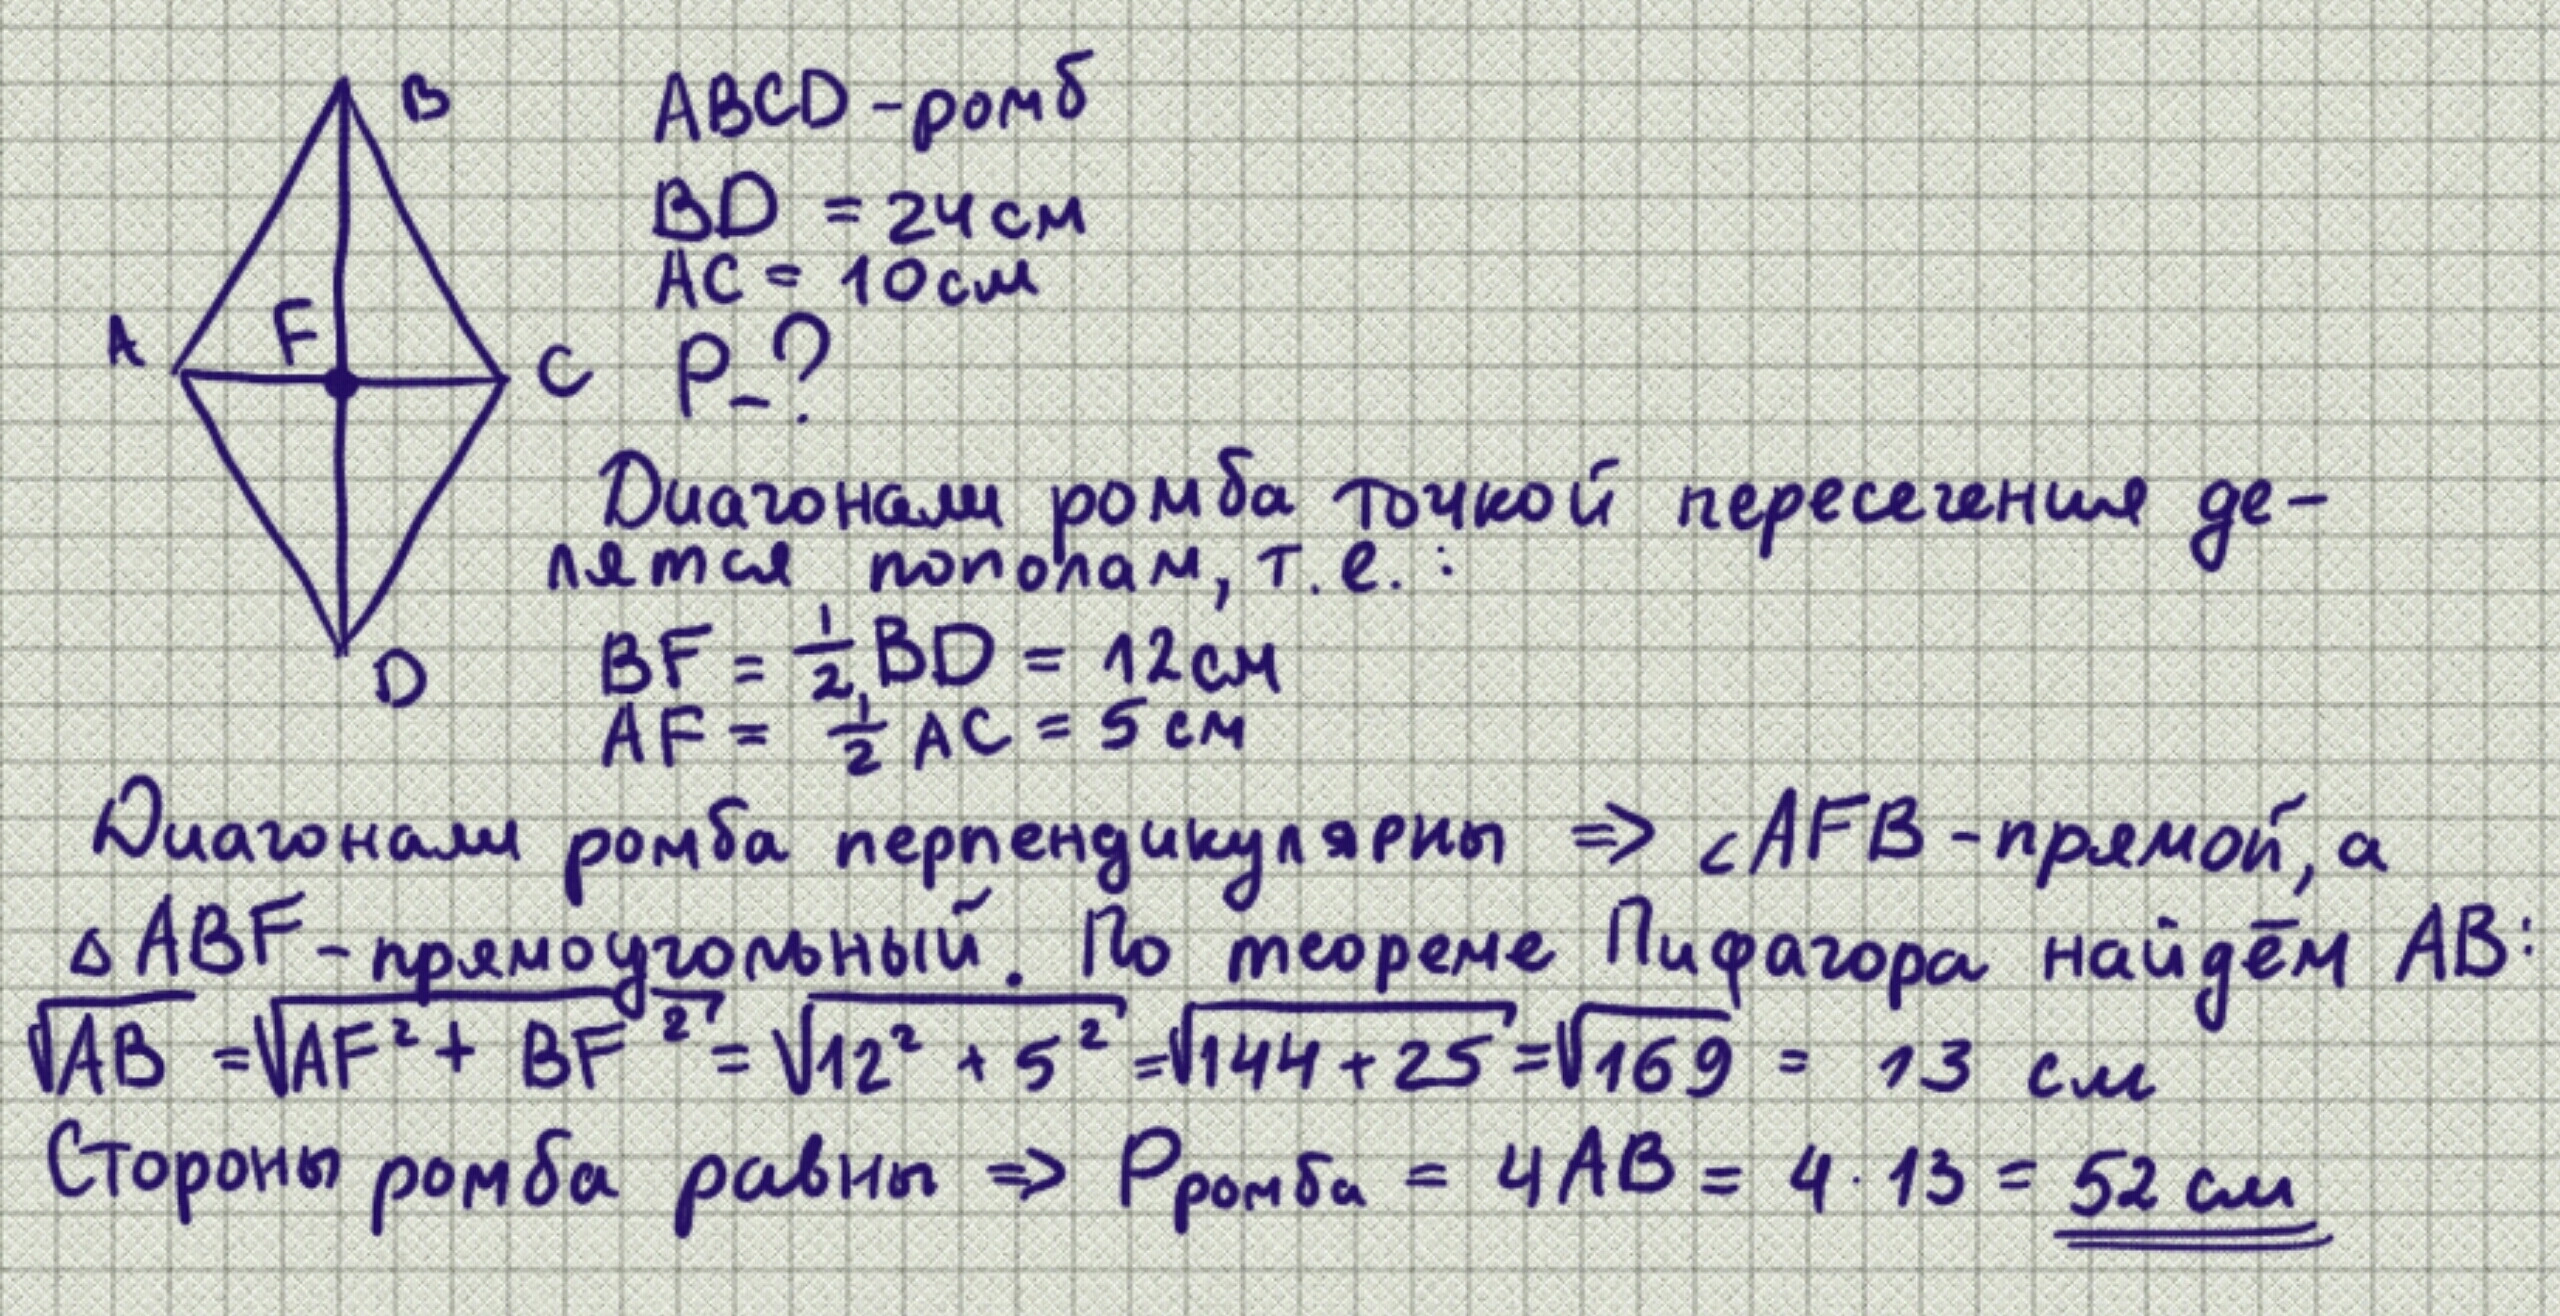 B
ABCD - ромб
BD = 24 см
AC = 10 см
A
F
C
P - ?
D
Диагонали ромба точкой пересечения де-
лятся пополам, т.е.:
BF = 1/2 BD = 12 см
AF = 1/2 AC = 5 см
Диагонали ромба перпендикулярны => ∠AFB - прямой, а
△ABF - прямоугольный. По теореме Пифагора найдём AB:
√AB = √AF² + BF² = √12² + 5² = √144 + 25 = √169 = 13 см
Стороны ромба равны => Pромба = 4AB = 4 · 13 = 52 см